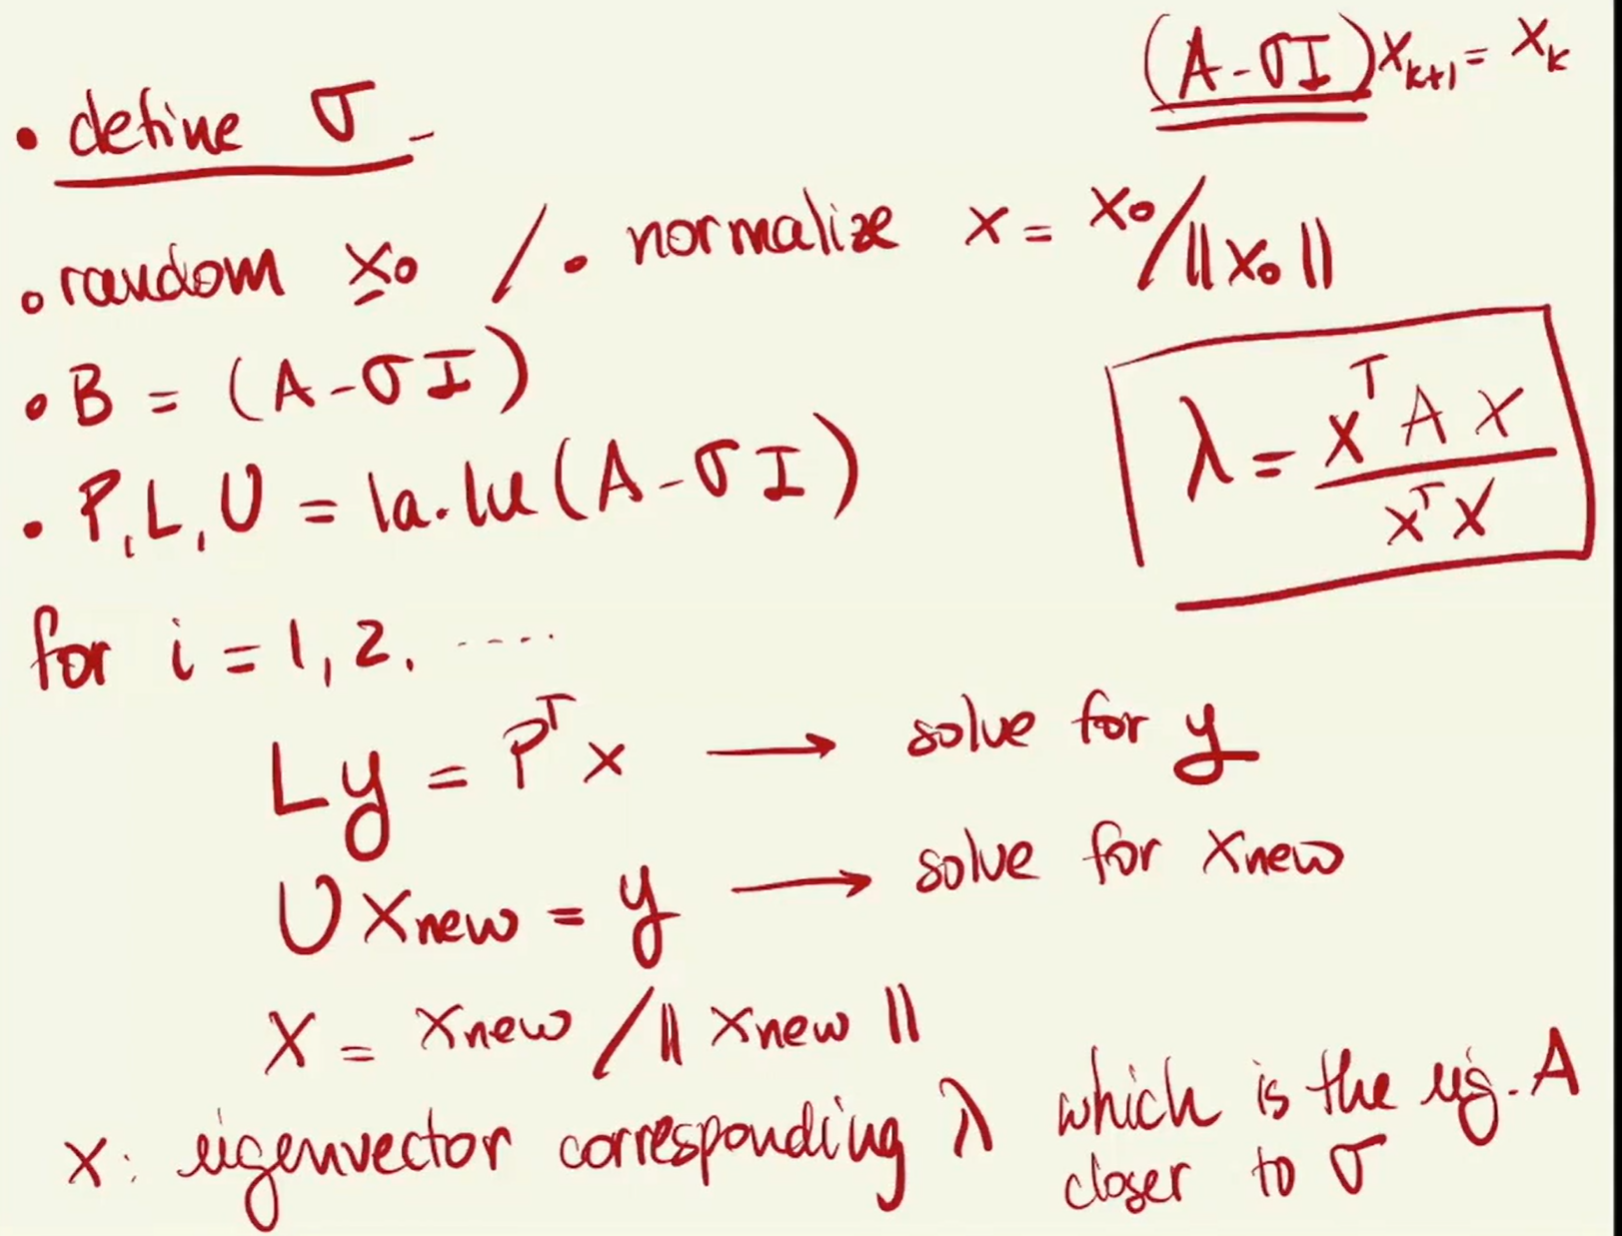 (A-σI)x_{k+1} = x_k
• define σ -
• random x₀ / • normalize x = x₀/||x₀||
• B = (A-σI)
• P, L, U = la.lu(A-σI)
λ = x^T A x / x^T x
for i = 1, 2, .....
Ly = P^T x → solve for y
U xnew = y → solve for xnew
X = xnew / || xnew ||
x: eigenvector corresponding λ which is the eig. A
closer to σ